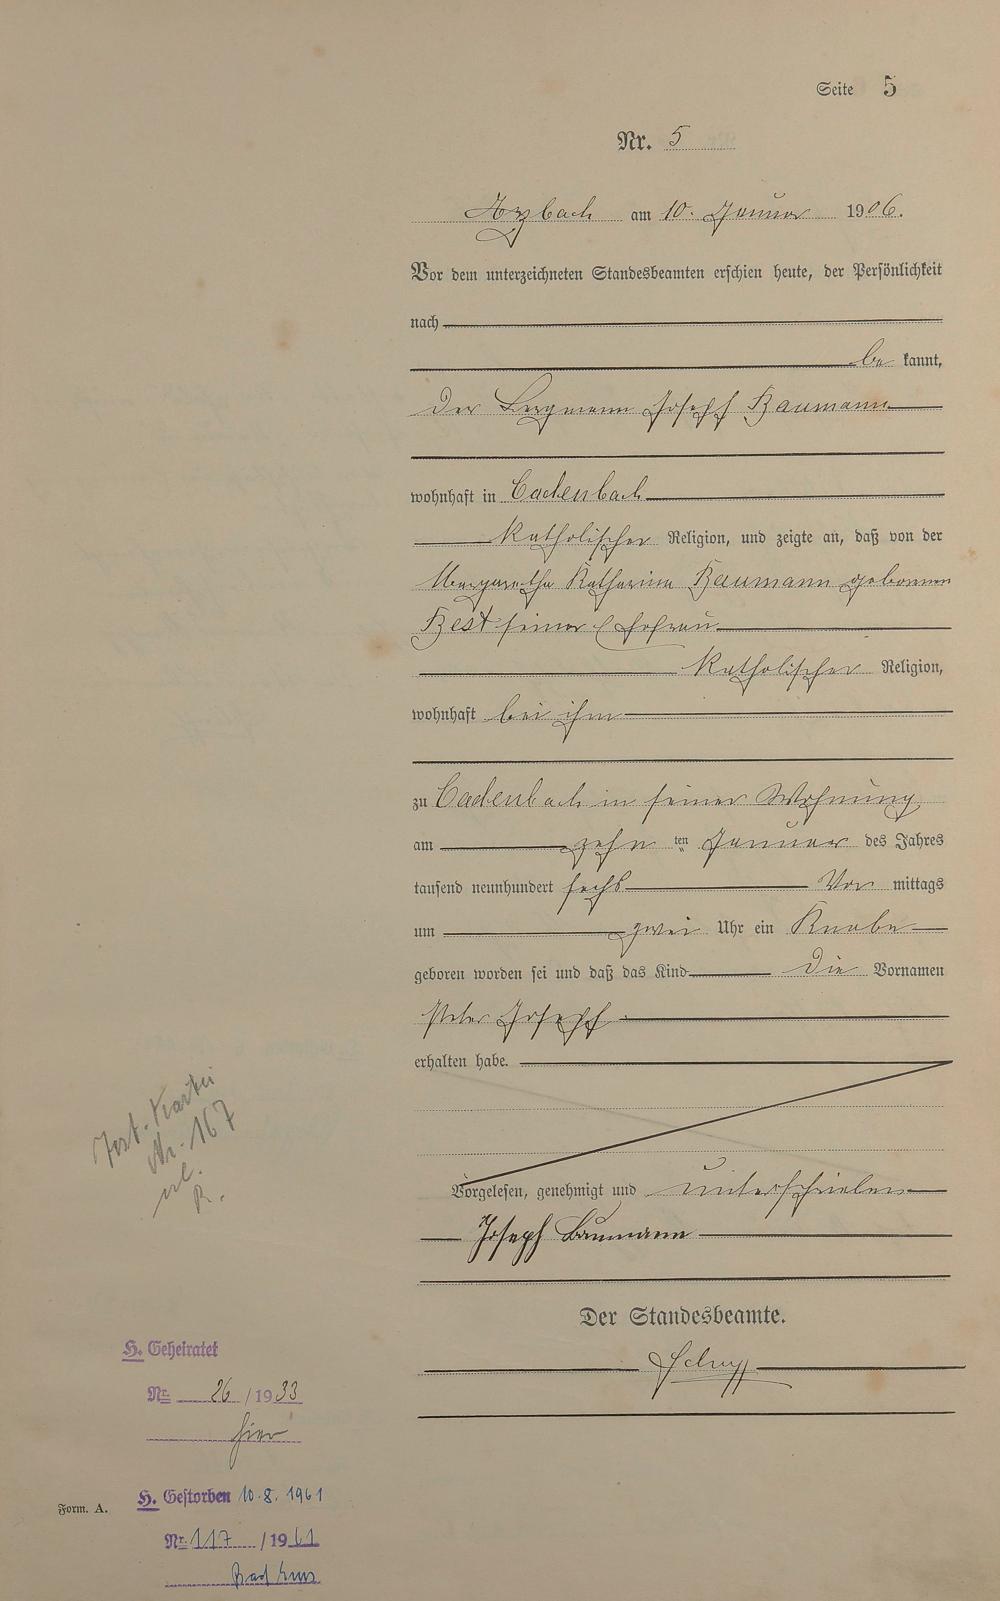 Seite 5
Nr. 5
Arzbach am 10. Januar 1906.
Vor dem unterzeichneten Standesbeamten erschien heute, der Persönlichkeit
nach
be kannt,
der Bergmann Joseph Baumann
wohnhaft in Cadenbach
katholischer Religion, und zeigte an, daß von der
Margaretha Katharina Baumann geborenen
Best seiner Ehefrau
katholischer Religion,
wohnhaft bei ihm
zu Cadenbach in seiner Wohnung
am zehn ten Januar des Jahres
tausend neunhundert sechs Vor mittags
um zwei Uhr ein Knabe
geboren worden sei und daß das Kind die Vornamen
Peter Joseph
erhalten habe.
Vorgelesen, genehmigt und unterschrieben
Joseph Baumann
Der Standesbeamte.
Kartei
Nr. 167
erl.
R.
H. Geheiratet
Nr. 26/1933
hier
H. Gestorben 10.8.1961
Nr. 117/1961
Bad Ems
Form. A.